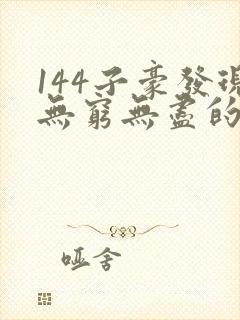 144子豪發現
無窮無盡的
哑舍